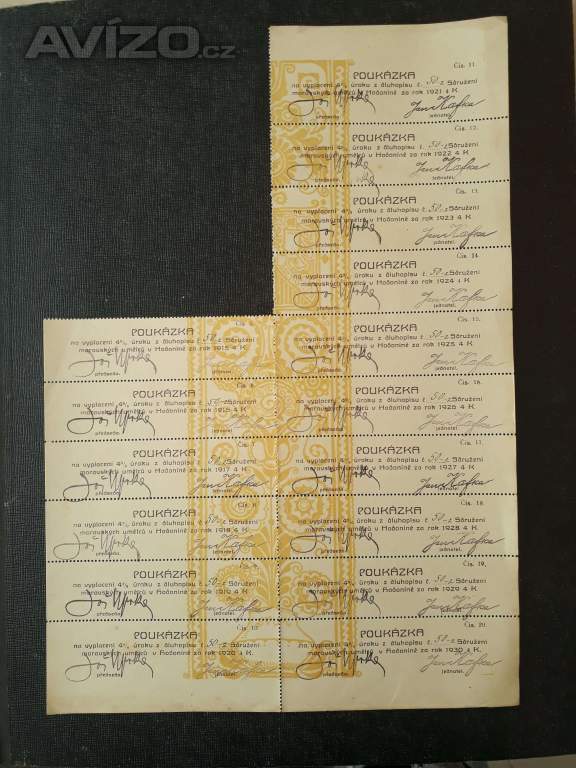 AVÍZO.cz
Čís. 11.
POUKÁZKA
na vyplacení 4% úroku z dluhopisu č. 50-z Sdružení
moravských umělců v Hodoníně za rok 1921 4 K
předseda. jednatel.
Čís. 12.
POUKÁZKA
na vyplacení 4% úroku z dluhopisu č. 50-z Sdružení
moravských umělců v Hodoníně za rok 1922 4 K
předseda. jednatel.
Čís. 13.
POUKÁZKA
na vyplacení 4% úroku z dluhopisu č. 50-z Sdružení
moravských umělců v Hodoníně za rok 1923 4 K
předseda. jednatel.
Čís. 14.
POUKÁZKA
na vyplacení 4% úroku z dluhopisu č. 50-z Sdružení
moravských umělců v Hodoníně za rok 1924 4 K
předseda. jednatel.
Čís. 5.
POUKÁZKA
na vyplacení 4% úroku z dluhopisu č. 50-z Sdružení
moravských umělců v Hodoníně za rok 1915 4 K
předseda.
Čís. 15.
POUKÁZKA
na vyplacení 4% úroku z dluhopisu č. 50-z Sdružení
moravských umělců v Hodoníně za rok 1925 4 K
předseda. jednatel.
Čís. 6.
POUKÁZKA
na vyplacení 4% úroku z dluhopisu č. 50-z Sdružení
moravských umělců v Hodoníně za rok 1916 4 K
předseda.
Čís. 16.
POUKÁZKA
na vyplacení 4% úroku z dluhopisu č. 50-z Sdružení
moravských umělců v Hodoníně za rok 1926 4 K
předseda. jednatel.
Čís. 7.
POUKÁZKA
na vyplacení 4% úroku z dluhopisu č. 50-z Sdružení
moravských umělců v Hodoníně za rok 1917 4 K
předseda. jednatel.
Čís. 17.
POUKÁZKA
na vyplacení 4% úroku z dluhopisu č. 50-z Sdružení
moravských umělců v Hodoníně za rok 1927 4 K
předseda. jednatel.
Čís. 8.
POUKÁZKA
na vyplacení 4% úroku z dluhopisu č. 50-z Sdružení
moravských umělců v Hodoníně za rok 1918 4 K
předseda. jednatel.
Čís. 18.
POUKÁZKA
na vyplacení 4% úroku z dluhopisu č. 50-z Sdružení
moravských umělců v Hodoníně za rok 1928 4 K
předseda. jednatel.
POUKÁZKA
na vyplacení 4% úroku z dluhopisu č. 50-z Sdružení
moravských umělců v Hodoníně za rok 1919 4 K
předseda. jednatel.
Čís. 19.
POUKÁZKA
na vyplacení 4% úroku z dluhopisu č. 50-z Sdružení
moravských umělců v Hodoníně za rok 1929 4 K
předseda. jednatel.
Čís. 10.
POUKÁZKA
na vyplacení 4% úroku z dluhopisu č. 50-z Sdružení
moravských umělců v Hodoníně za rok 1920 4 K
předseda. jednatel.
Čís. 20.
POUKÁZKA
na vyplacení 4% úroku z dluhopisu č. 50-z Sdružení
moravských umělců v Hodoníně za rok 1930 4 K
předseda. jednatel.